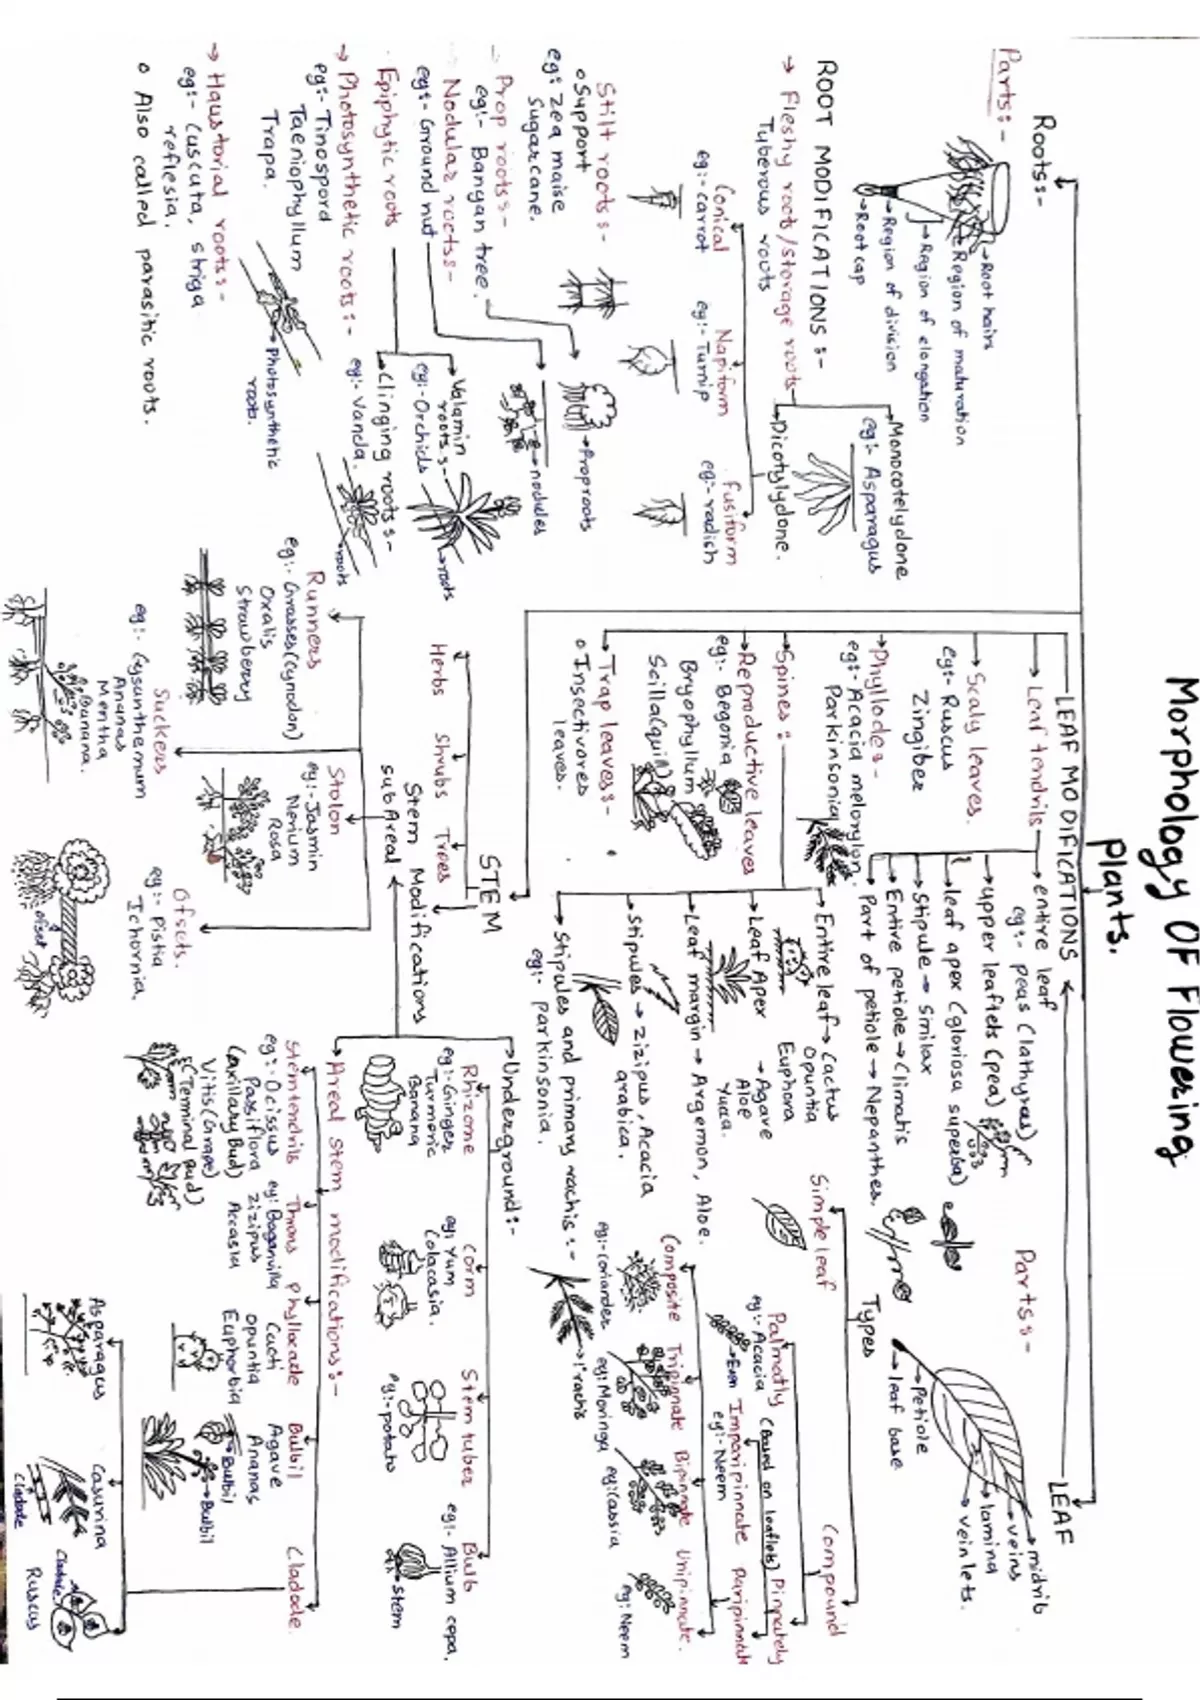 Morphology OF Flowering
plants.
Roots:-
Parts:-
Root hairs
Region of maturation
Region of elongation
Region of division
Root cap
ROOT MODIFICATIONS:-
→ Fleshy roots/storage roots
Tuberous roots
Monocotelydone
eg:- Asparagus
Dicotylydone.
Conical
eg:- carrot
Napiform
eg:- Turnip
Fusiform
eg:- radish
Stilt roots:-
o Support
eg: Zea maise
Sugarcane.
Prop roots:-
eg:- Banyan tree.
Proproots
Nodular roots:-
eg:- Ground nut
nodules
Epiphytic roots
Valamin
roots:-
eg:- Orchids
roots
Clinging roots:-
eg:- Vanda.
roots
→ Photosynthetic roots:-
eg:- Tinospord
Taeniophyllum
Trapa.
Photosynthetic
roots.
→ Haustorial roots:-
eg:- Cuscuta, striga
reflesia.
o Also called parasitic roots.
LEAF MODIFICATIONS
Leaf tendrils
entire leaf
eg:- peas (lathyras)
upper leaflets (pea)
leaf apex (gloriosa superba)
Stipule → Smilax
Entire petiole → Climatis
Part of petiole → Nepanthes.
Scaly leaves.
eg:- Ruscus
Zingiber
Phyllode:-
eg:- Acacia melonylon.
Parkinsonia
Spines:
Entire leaf → Cactus
Opuntia
Euphora
Leaf Apex → Agave
Aloe
Yucca.
Leaf margin → Argemon, Aloe.
Stipules → Zizipus, Acacia
arabica.
Stipules and primary rachis:-
eg:- parkinsonia.
rachis
Reproductive leaves
eg:- Begonia
Bryophyllum
Scilla(quill)
Trap leaves:-
o Insectivores
leaves.
LEAF
Parts:-
midrib
veins
lamina
veinlets.
Petiole
leaf base
Types
Simple leaf
Compound
Palmatly (Based on leaflets) Pinnately
eg:- Acacia
Even
Imparipinnate
eg:- Neem
paripinnate
Composite
eg:- coriander
Tripinnate
eg: Moringa
Bipinnate
eg: Cassia
Unipinnate.
eg: Neem
STEM
Herbs
Shrubs
Trees
Stem Modifications
subAreal
Runners
eg:- Grasses (cynodon)
Oxalis
Strawberry
Suckers
eg:- Cysunthemum
Ananas
Mentha
Banana.
Stolon
eg:- Jasmin
Nerium
Rosa
Ofsets.
eg:- Pistia
Ichornia.
ofset
Underground:-
Rhizome
eg:- Ginger
Turmeric
Banana
Corm
eg: Yum
Colacasia.
Stem tuber
eg:- potato
Bulb
eg:- Allium cepa.
Stem
Areal stem modifications:-
Stem tendrils
eg:- Ocissus
Passiflora
(axillary Bud)
Vitis (Grape)
(Terminal Bud)
Throns
eg: Boganvilla
Zizipus
Accasia
Phyllocade
Cacti
opuntia
Euphorbia
Bulbil
Agave
Ananas
Bulbil
Bulbil
Cladode.
Asparagus
Casurina
Cladode
Cladode
Ruscus